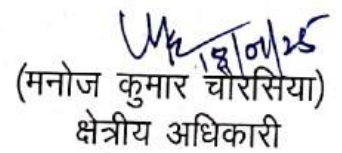 18/01/25
(मनोज कुमार चौरसिया)
क्षेत्रीय अधिकारी